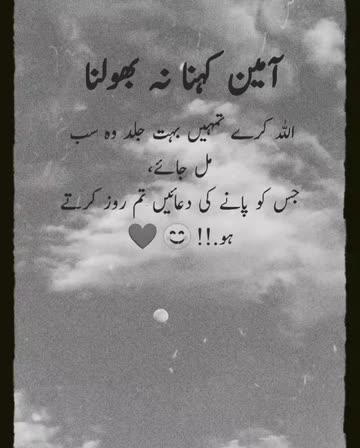 آمین کہنا نہ بھولنا
اللہ کرے تمہیں بہت جلد وہ سب
مل جائے،
جس کو پانے کی دعائیں تم روز کرتے
ہو.!! 😊🖤